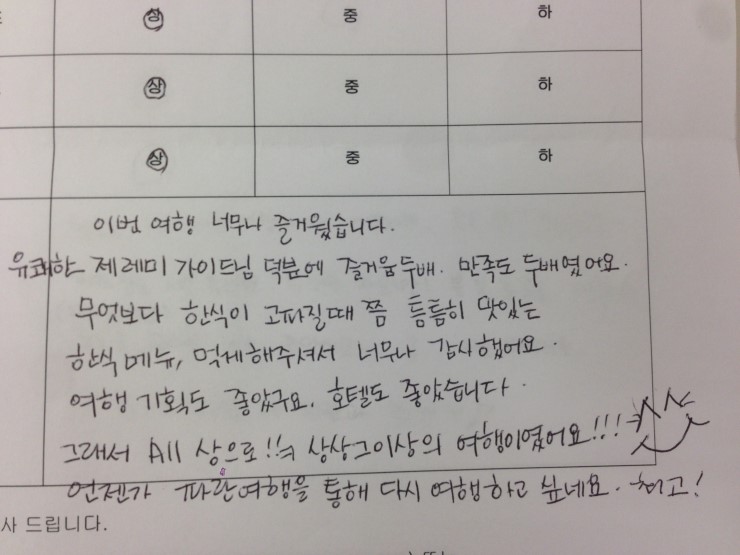 상 중 하
상 중 하
상 중 하
이번 여행 너무나 즐거웠습니다.
유쾌한 제레미 가이드님 덕분에 즐거움두배. 만족도 두배였어요.
무엇보다 한식이 고파질때 쯤 틈틈히 맛있는
한식메뉴, 먹게해주셔서 너무나 감사했어요.
여행 기획도 좋았구요. 호텔도 좋았습니다.
그래서 All 상으로!! 상상그이상의 여행이였어요!!!
언젠가 파란여행을 통해 다시 여행하고 싶네요. 최고!
사 드립니다.